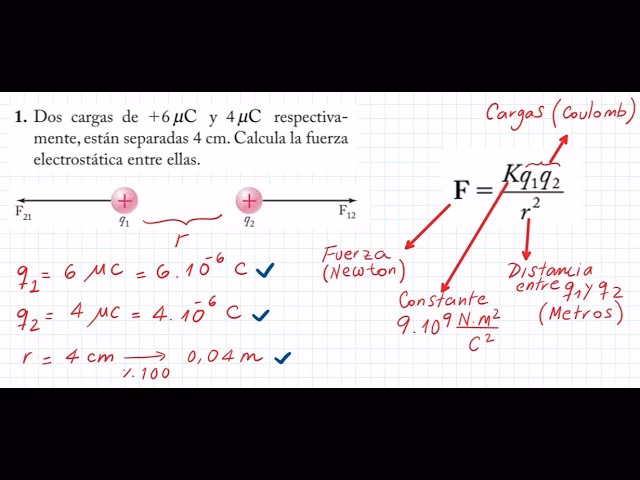 1. Dos cargas de +6 μC y 4 μC respectiva-
mente, están separadas 4 cm. Calcula la fuerza
electrostática entre ellas.
+ +
F21 q1 q2 F12
r
q1 = 6 μC = 6.10^-6 C ✓
q2 = 4 μC = 4.10^-6 C ✓
r = 4 cm → 0,04 m ✓
٪100
Cargas (Coulomb)
F = Kq1q2 / r²
Fuerza
(Newton)
Constante
9.10^9 N.m² / C²
Distancia
entre q1 y q2
(Metros)